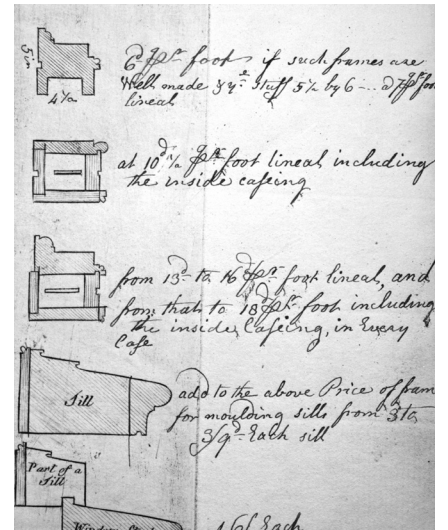 5 in
4 1/2
6d pr foot if such frames are
Well made & ye Stuff 5 1/2 by 6 -- a 7d pr foot
lineal
at 10d 1/2 pr foot lineal including
the inside caseing
from 13d to 16d pr foot lineal, and
from that to 18d pr foot including
the inside Caseing, in Every
Case
Sill
add to the above Price of fram
for moulding sills from 3 to
3/9d Each sill
Part of a
Sill
Window
Each